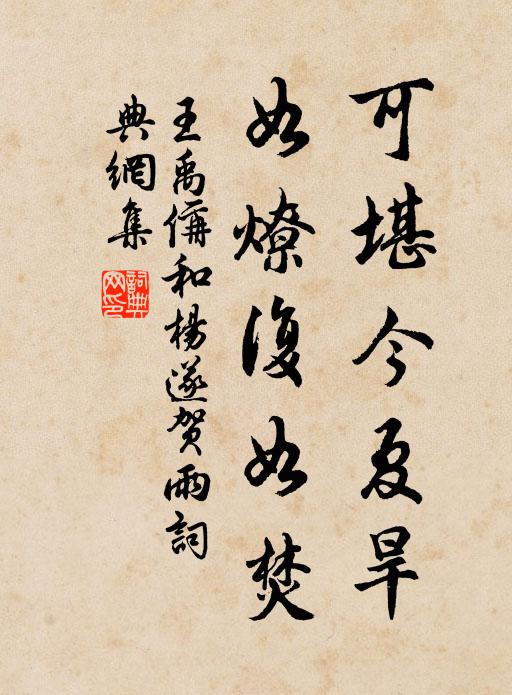 可堪今夏旱
如燎復如焚
王禹偁和楊遂賀雨詞
典網集
詞典網印